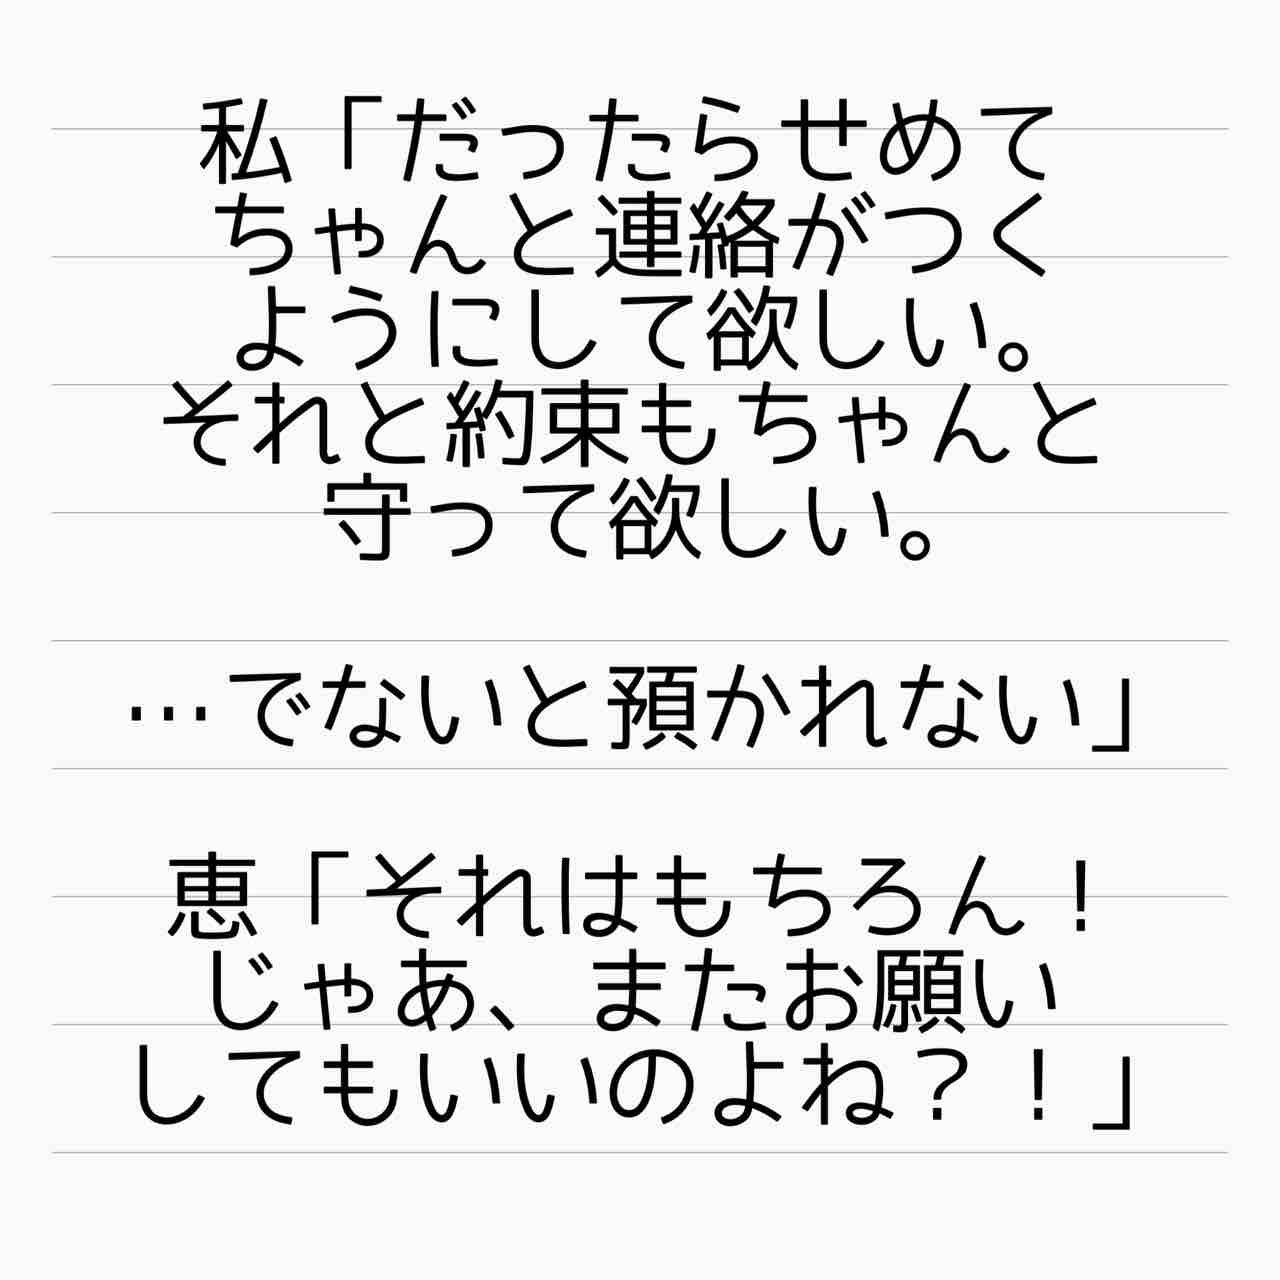 私「だったらせめて
ちゃんと連絡がつく
ようにして欲しい。
それと約束もちゃんと
守って欲しい。
…でないと預かれない」
恵「それはもちろん！
じゃあ、またお願い
してもいいのよね？！」